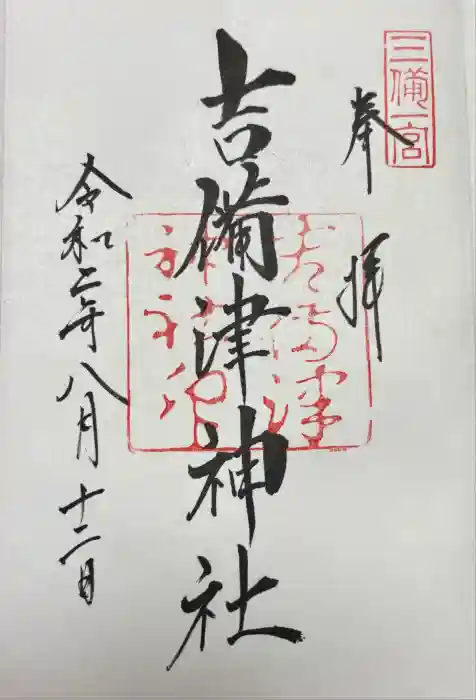 三備一宮
奉拝
吉備津神社
令和二年八月十二日